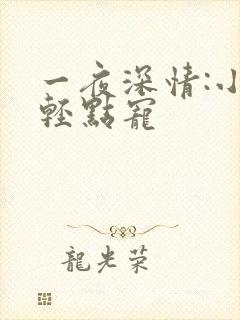 一夜深情:小
輕點寵
龍光荣